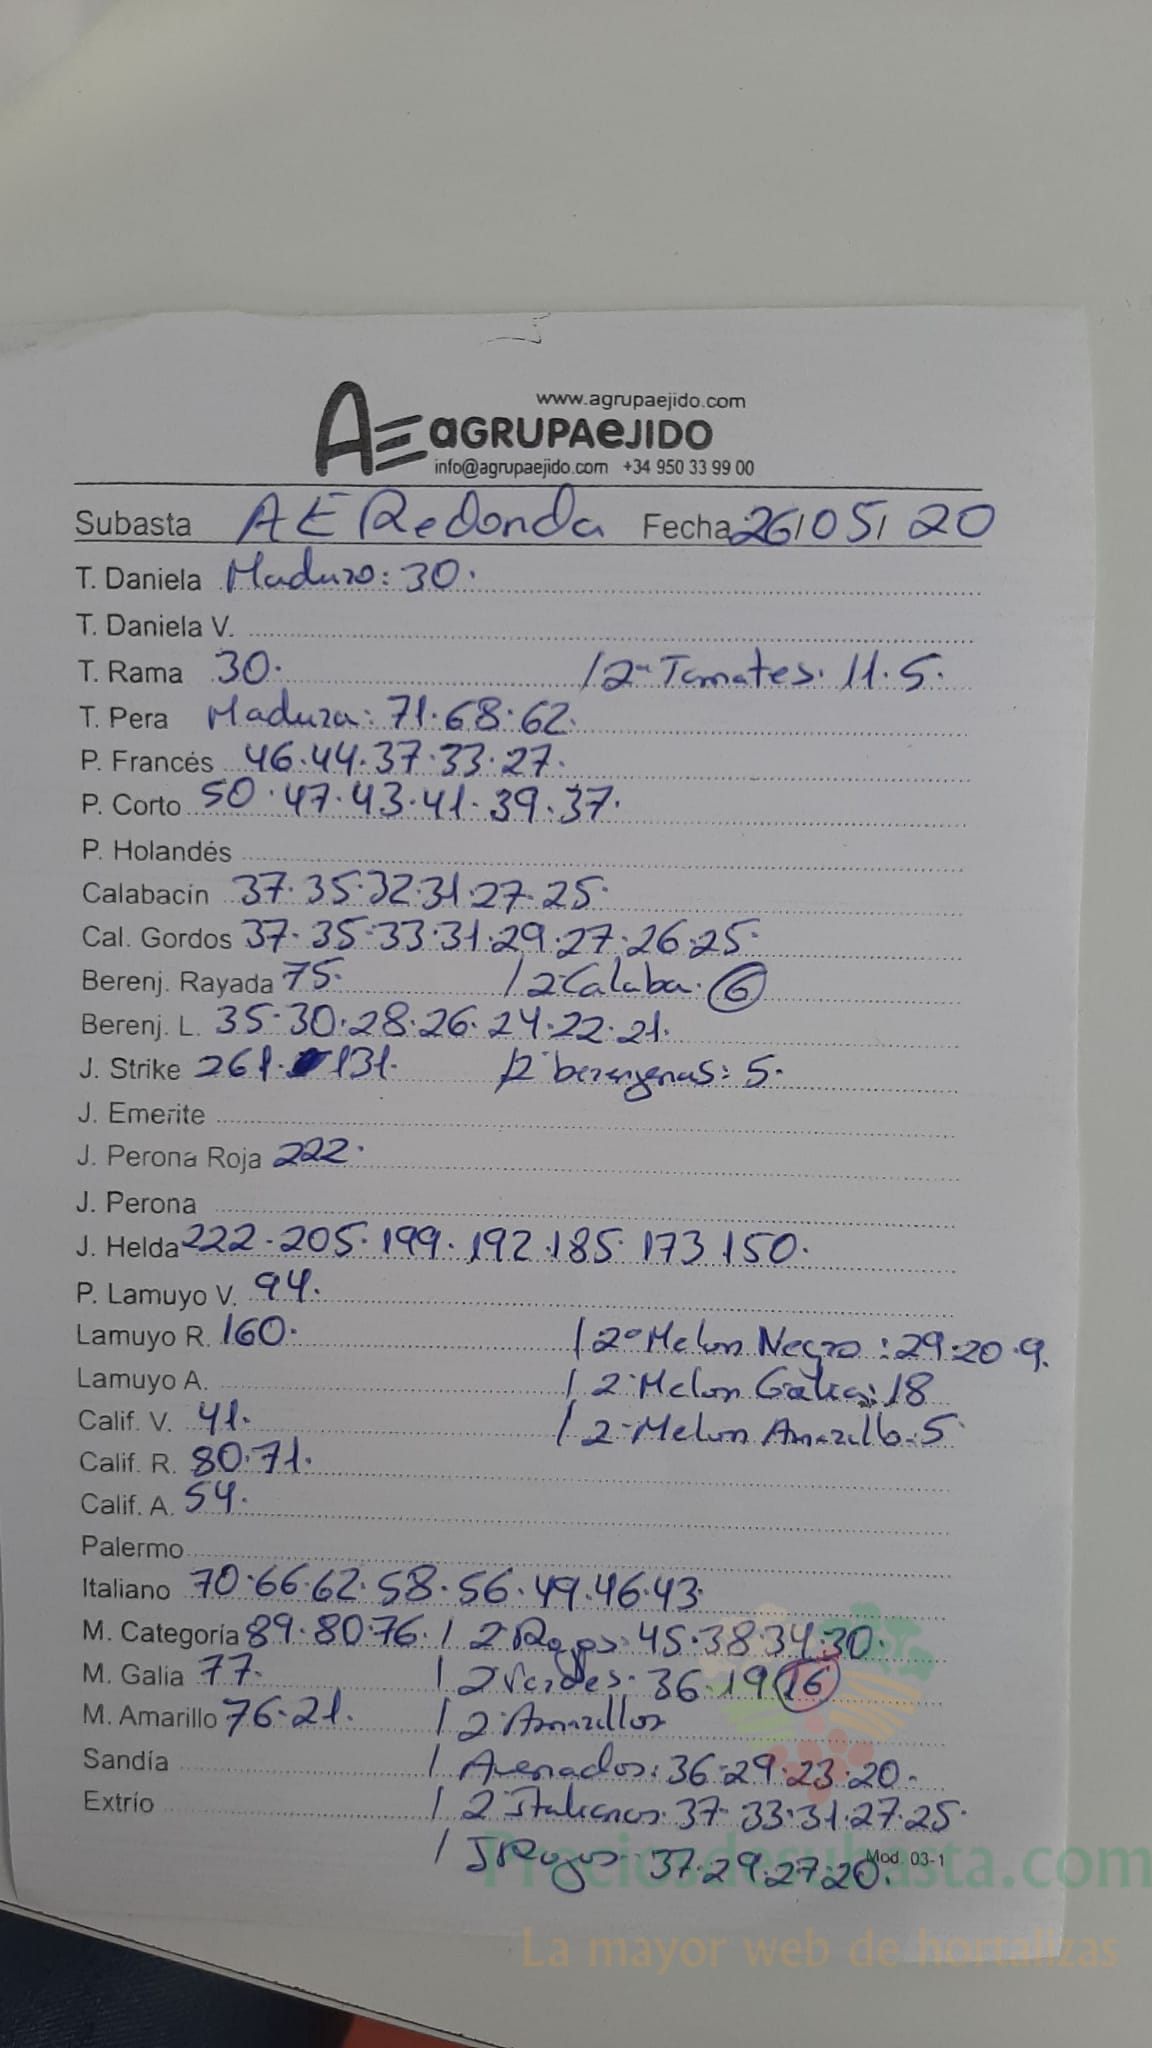 www.agrupaejido.com
AE aGRUPAeJIDO
info@agrupaejido.com +34 950 33 99 00
Subasta AE Redonda Fecha 26/05/20
T. Daniela Maduro: 30.
T. Daniela V.
T. Rama 30. / 2ª Tomates. 11.5.
T. Pera Madura: 71.68.62.
P. Francés 46.44.37.33.27.
P. Corto 50.47.43.41.39.37.
P. Holandés
Calabacín 37.35.32.31.27.25.
Cal. Gordos 37.35.33.31.29.27.26.25.
Berenj. Rayada 75. / 2ª Calaba. 6
Berenj. L. 35.30.28.26.24.22.21.
J. Strike 261. 131. / 2ª berengenas: 5.
J. Emerite
J. Perona Roja 222.
J. Perona
J. Helda 222.205.199.192.185.173.150.
P. Lamuyo V. 94.
Lamuyo R. 160. / 2ª Melon Negro: 29.20.9.
Lamuyo A. / 2ª Melon Galia: 18
Calif. V. 41. / 2ª Melon Amarillo. 5
Calif. R. 80.71.
Calif. A. 54.
Palermo
Italiano 70.66.62.58.56.49.46.43.
M. Categoría 89.80.76. / 2ª Rojos. 45.38.34.30.
M. Galia 77. / 2ª Verdes. 36.19 16
M. Amarillo 76.21. / 2ª Amarillos
Sandía / Asenados: 36.29.23.20.
Extrío / 2ª Italianos. 37.33.31.27.25.
/ I Rojos. 37.29.27.20.
Mod. 03-1
Preciosdesubasta.com
La mayor web de hortalizas